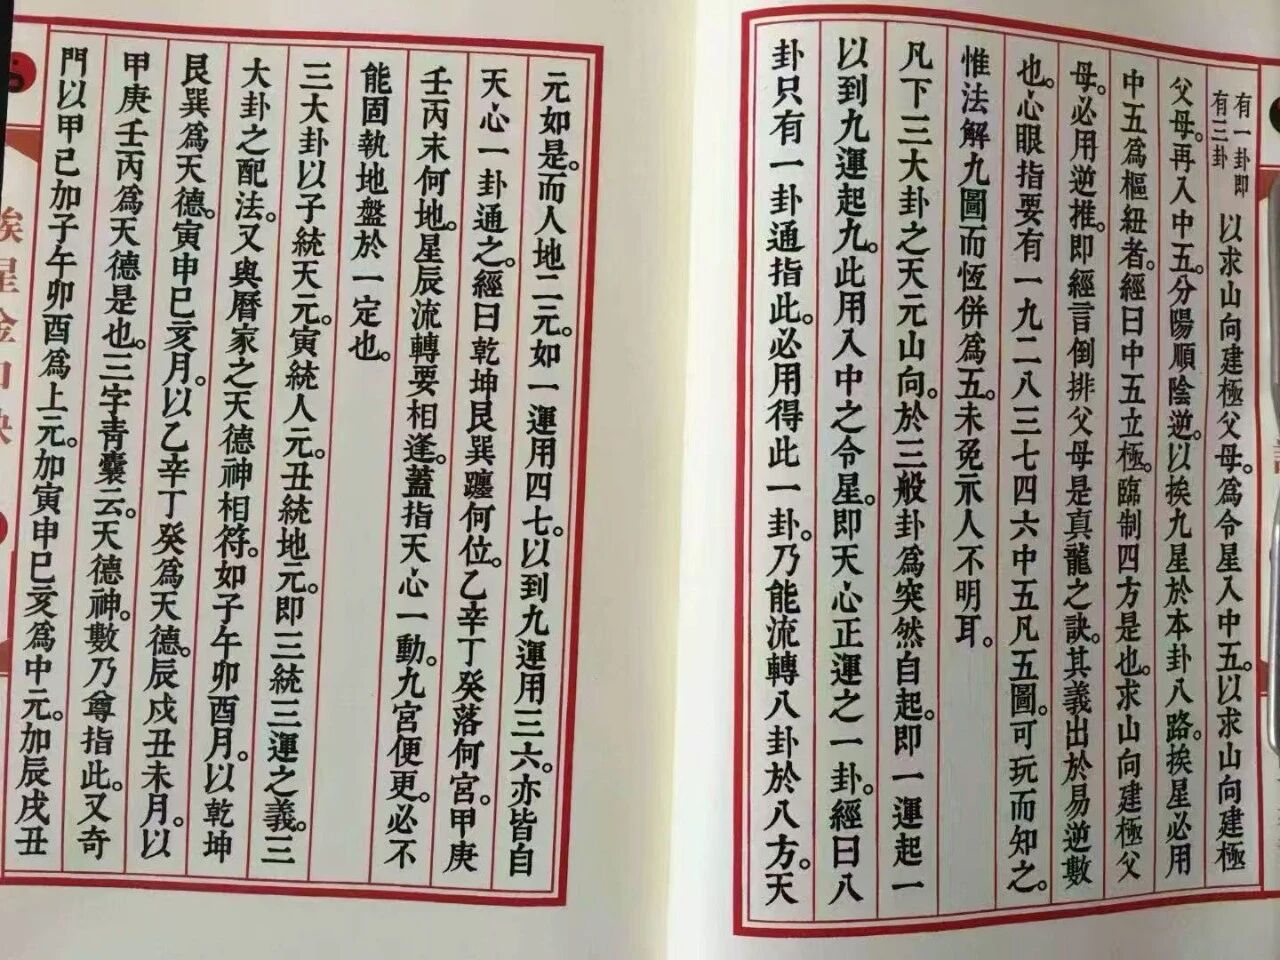 有一卦即
有三卦
以求山向建極父母。為令星入中五。以求山向建極
父母。再入中五。分陽順陰逆。以挨九星於本卦八路。挨星必用
中五為樞紐者。經曰中五立極。臨制四方是也。求山向建極父
母。必用逆推。即經言倒排父母是真龍之訣。其義出於易逆數
也。心眼指要有一九二八三七四六中五凡五圖。可玩而知之。
惟法解九圖而恆併為五。未免示人不明耳。
凡下三大卦之天元山向。於三般卦為突然自起。即一運起一
以到九運起九。此用入中之令星。即天心正運之一卦。經曰八
卦只有一卦通指此。必用得此一卦。乃能流轉八卦於八方。天
元如是。而人地二元。如一運用四七。以到九運用三六。亦皆自
天心一卦通之。經曰乾坤艮巽躔何位。乙辛丁癸落何宮。甲庚
壬丙末何地。星辰流轉要相逢。蓋指天心一動。九宮便更。必不
能固執地盤於一定也。
三大卦以子統天元。寅統人元。丑統地元。即三統三運之義。三
大卦之配法。又與曆家之天德神相符。如子午卯酉月。以乾坤
艮巽為天德。寅申巳亥月。以乙辛丁癸為天德。辰戌丑未月。以
甲庚壬丙為天德是也。三字青囊云。天德神。數乃尊指此。又奇
門以甲己加子午卯酉為上元。加寅申巳亥為中元。加辰戌丑